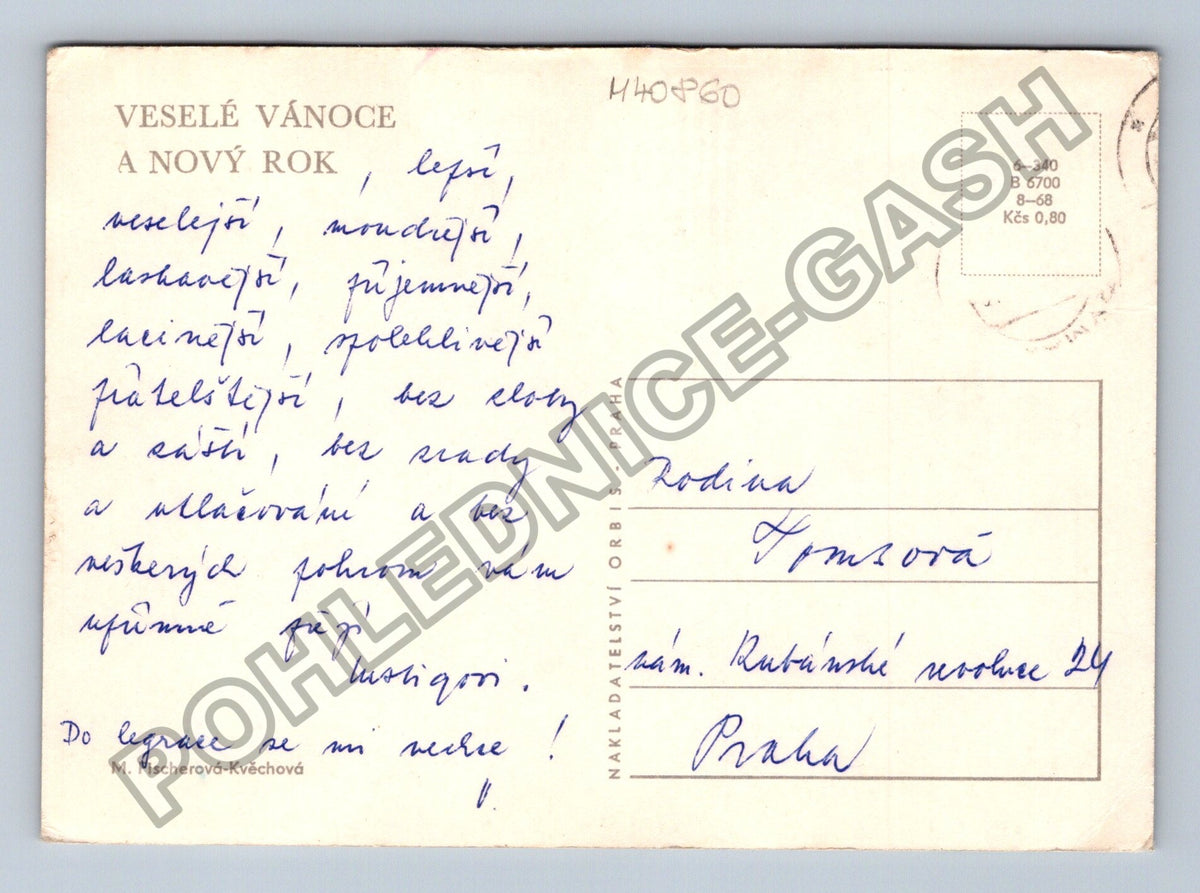 M40860
VESELÉ VÁNOCE
A NOVÝ ROK
, lepší,
veselejší, moudřejší,
laskavější, příjemnější,
lacinější, spolehlivější
přátelštější, bez zloby
a zášti, bez zrady
a utlačování a bez
veškerých pohrom vám
upřímně přejí
Lustigovi.
Do legrace se mi nechce!
M. Fischerová-Kvěchová
6—340
B 6700
8—68
Kčs 0,80
NAKLADATELSTVÍ ORBIS - PRAHA
Rodina
Tomsová
nám. Kubánské revoluce 24
Praha
POHLEDNICE-GASH